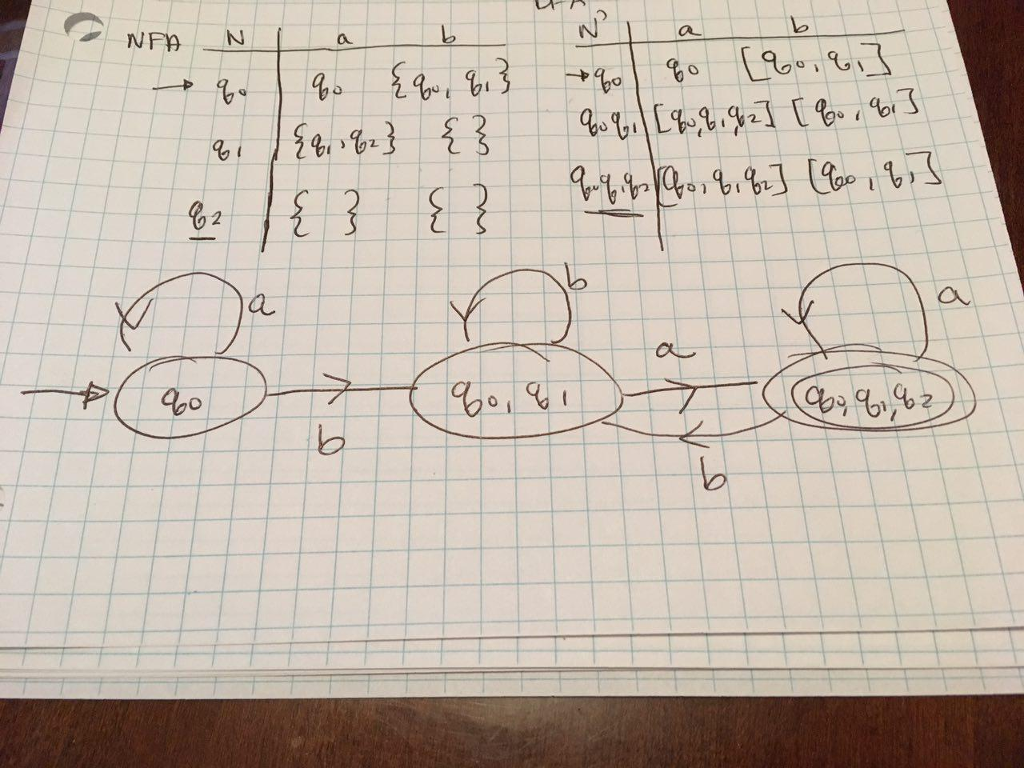 NFA N a b
→ q0 q0 {q0, q1}
q1 {q1, q2} { }
q2 { } { }
N' a b
→ q0 q0 [q0, q1]
q0q1 [q0,q1,q2] [q0, q1]
q0q1q2 [q0, q1, q2] [q0, q1]
a
b
a
q0
b
q0, q1
a
b
q0, q1, q2